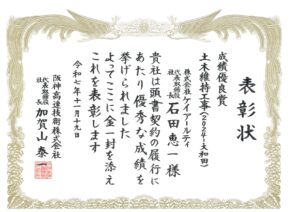 表彰状
成績優良賞
土木維持工事(2024-大和田)
株式会社ケイアールティ
代表取締役
社長 石田 恵一 様
貴社は頭書契約の履行に
あたり優秀な成績を
挙げられました
よってここに金一封を添え
これを表彰します
令和七年十一月十九日
阪神高速技術株式会社
代表取締役
社長 加賀山 泰一